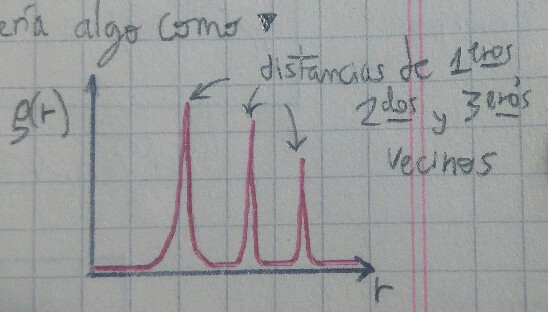 ería algo como
distancias de 1eros,
2dos y 3eros
vecinos
g(r)
r